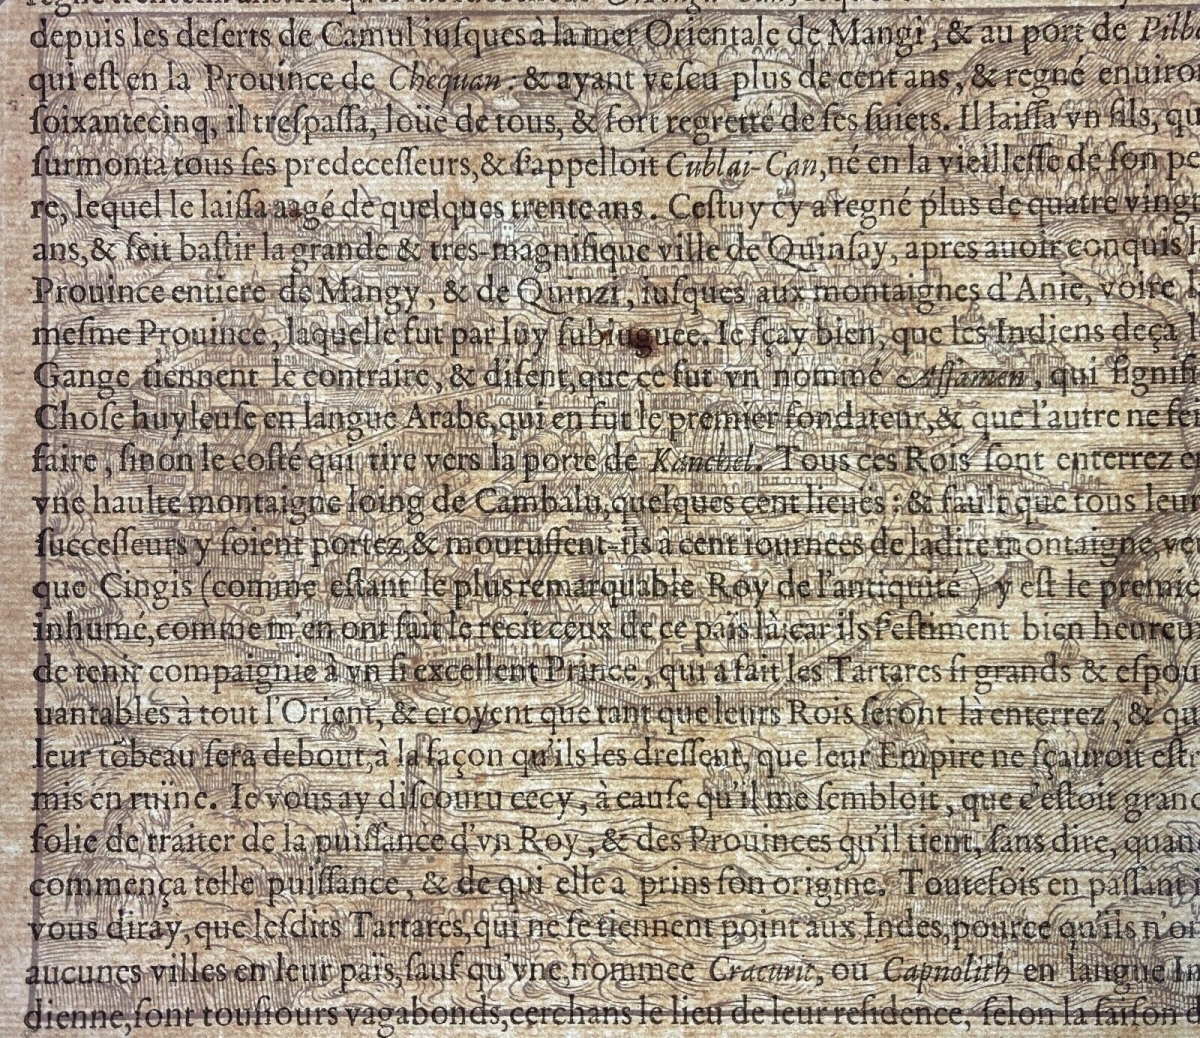 depuis les deſerts de Camul iuſques à la mer Orientale de Mangi, & au port de Pilb
qui eſt en la Prouince de Chequan: & ayant veſcu plus de cent ans, & regné enuiro
ſoixantecinq, il treſpaſſa, loüé de tous, & fort regretté de ſes ſuiets. Il laiſſa vn fils, qu
ſurmonta tous ſes predeceſſeurs, & ſ'appelloit Cublai-Can, né en la vieilleſſe de ſon pe
re, lequel le laiſſa aagé de quelques trente ans. Ceſtuy cy a regné plus de quatre vingt
ans, & feit baſtir la grande & tres-magnifique ville de Quinſay, apres auoir conquis l
Prouince entiere de Mangy, & de Quinzi, iuſques aux montaignes d'Anie, voire l
meſme Prouince, laquelle fut par luy ſubiuguee. Ie ſçay bien, que les Indiens deça l
Gange tiennent le contraire, & diſent, que ce fut vn nommé Aſſamen, qui ſignifi
Choſe huyleuſe en langue Arabe, qui en fut le premier fondateur, & que l'autre ne fei
faire, ſinon le coſté qui tire vers la porte de Kanchel. Tous ces Rois ſont enterrez e
vne haulte montaigne loing de Cambalu, quelques cent lieuës: & fault que tous leur
ſucceſſeurs y ſoient portez, & mouruſſent-ils à cent iournees de ladite montaigne, ve
que Cingis (comme eſtant le plus remarquable Roy de l'antiquité) y eſt le premie
inhumé, comme m'en ont fait le recit ceux de ce païs là: car ils ſ'eſtiment bien heureu
de tenir compaignie à vn ſi excellent Prince, qui a fait les Tartares ſi grands & eſpou
uantables à tout l'Orient, & croyent que tant que leurs Rois ſeront là enterrez, & qu
leur tõbeau ſera debout, à la façon qu'ils les dreſſent, que leur Empire ne ſçauroit eſtr
mis en ruïne. Ie vous ay diſcouru cecy, à cauſe qu'il me ſembloit, que c'eſtoit gran
folie de traiter de la puiſſance d'vn Roy, & des Prouinces qu'il tient, ſans dire, quan
commença telle puiſſance, & de qui elle a prins ſon origine. Toutefois en paſſant
vous diray, que leſdits Tartares, qui ne ſe tiennent point aux Indes, pource qu'ils n'o
aucunes villes en leur païs, ſauf qu'vne, nommee Cracurit, ou Capnolith en langue In
dienne, ſont touſiours vagabonds, cerchans le lieu de leur reſidence, ſelon la ſaiſon d